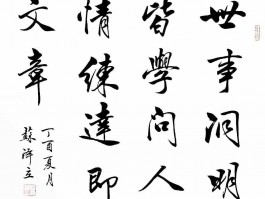 世事洞明
皆學問人
情練達即
文章
丁酉夏月
蘇澤立